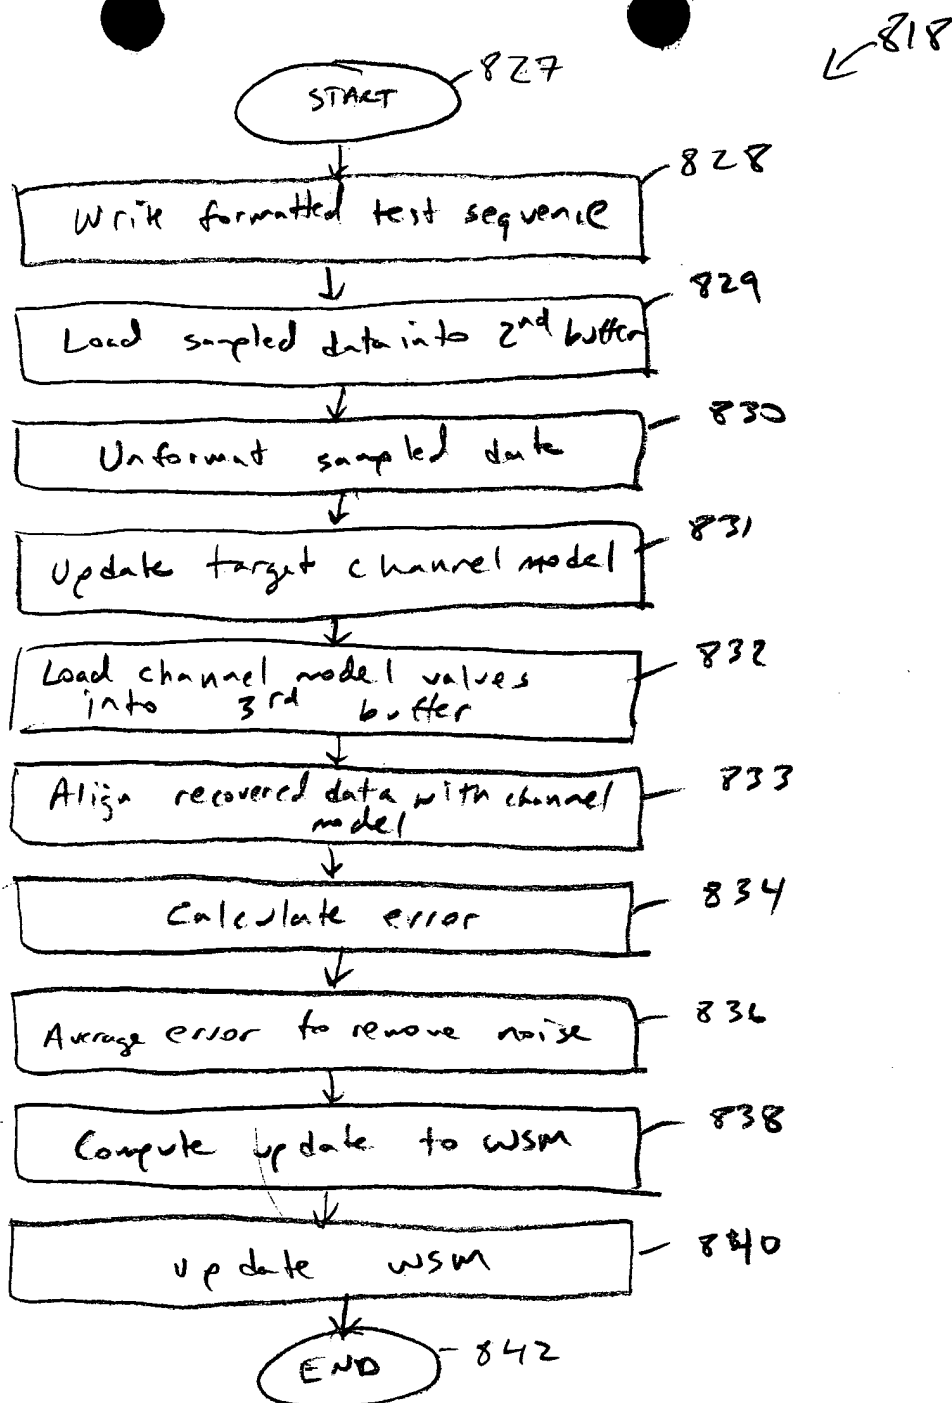 818
START
827
Write formatted test sequence
828
Load sampled data into 2nd buffer
829
Unformat sampled data
830
Update target channel model
831
Load channel model values
into 3rd buffer
832
Align recovered data with channel
model
833
Calculate error
834
Average error to remove noise
836
Compute update to WSM
838
update WSM
840
END
842